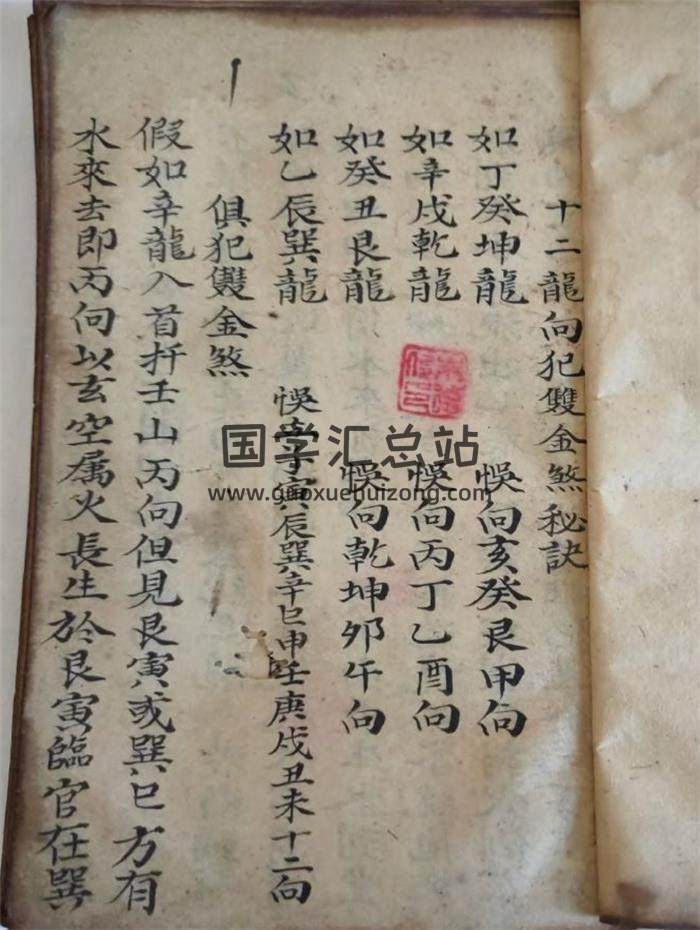 十二龍向犯雙金煞秘訣
如丁癸坤龍 悞向亥癸艮甲向
如辛戌乾龍 悞向丙丁乙酉向
如癸丑艮龍 悞向乾坤夘午向
如乙辰巽龍 悞 子寅辰巽辛巳申壬庚戌丑未十二向
俱犯雙金煞
假如辛龍入首扦壬山丙向但見艮寅或巽巳方有
水來去即丙向以玄空属火長生於艮寅臨官在巽
国学汇总站
www.guoxuehuizong.com